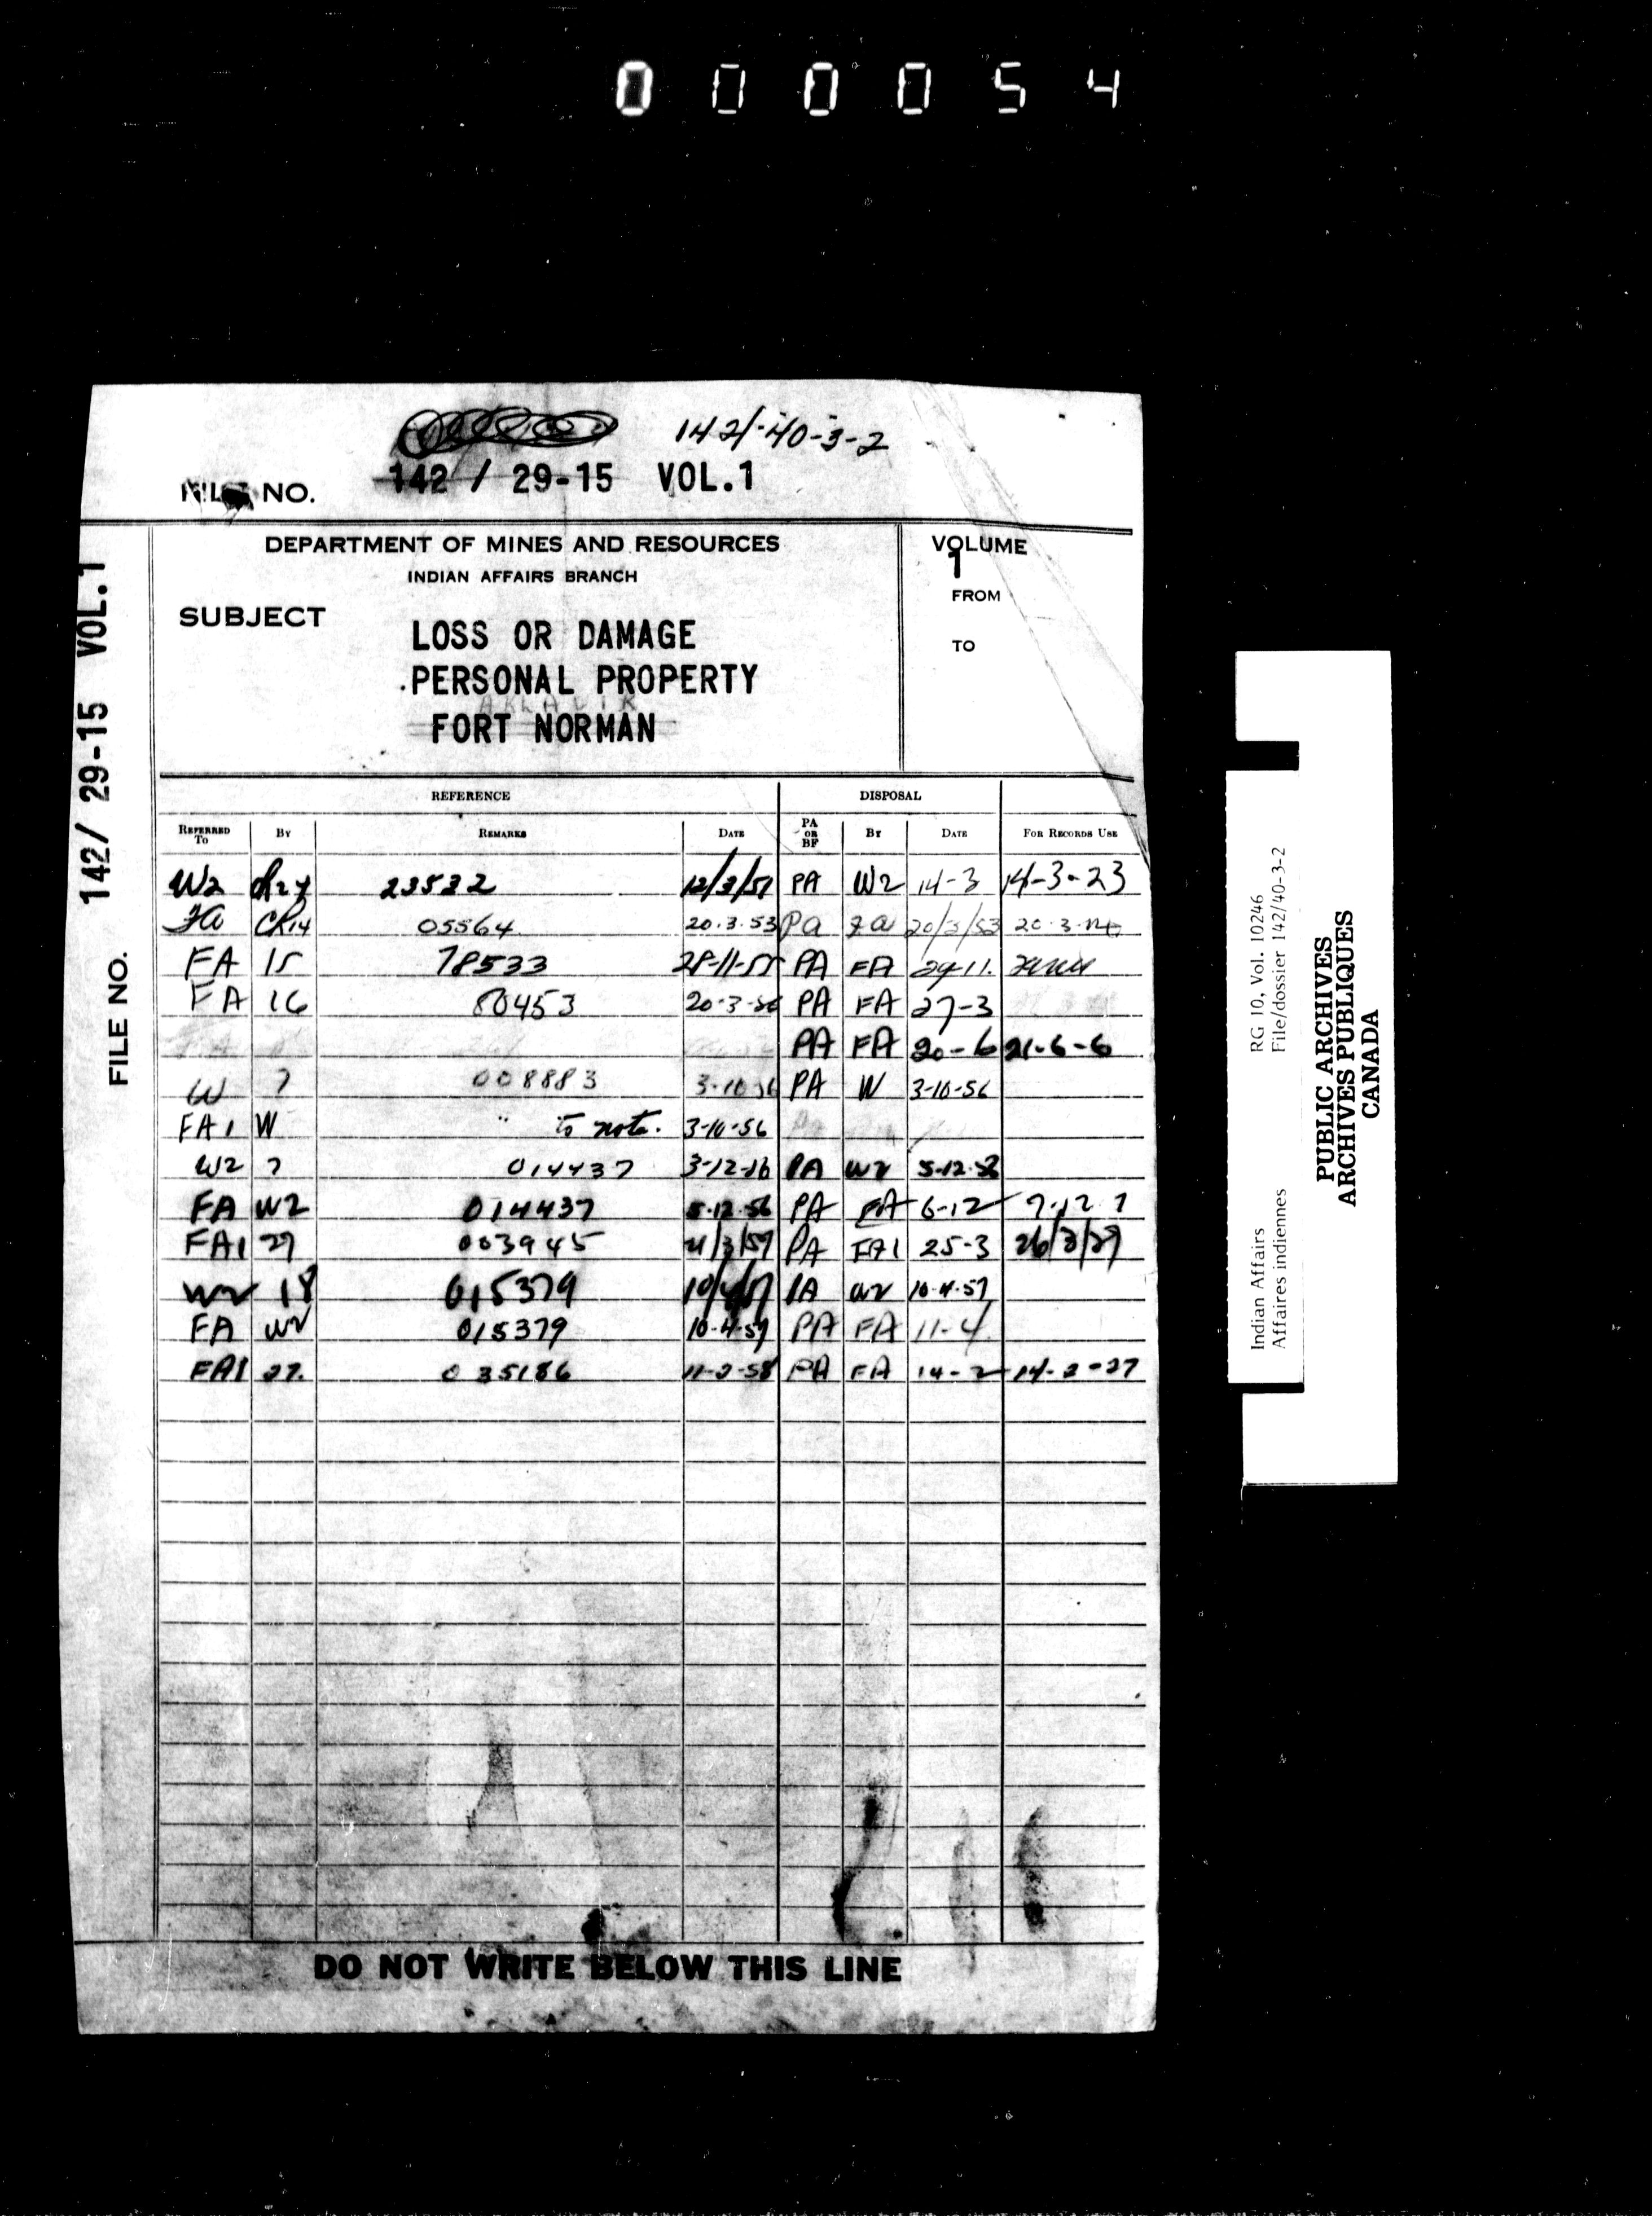 000054
142/40-3-2
FILE NO. 142 / 29-15 VOL.1
DEPARTMENT OF MINES AND RESOURCES
INDIAN AFFAIRS BRANCH
VOLUME
1
FROM
TO
SUBJECT
LOSS OR DAMAGE
PERSONAL PROPERTY
AKLAVIK
FORT NORMAN
142/ 29-15 VOL.1
FILE NO.
REFERENCE DISPOSAL
REFERRED TO BY REMARKS DATE PA OR BF BY DATE FOR RECORDS USE
W2 23532 12/3/51 PA W2 14-3 14-3-23
Fa CR14 05564 20.3.53 Pa Fa 20/3/53 20.3
FA 15 78533 28-11-55 PA FA 29-11.
FA 16 80453 20-3-56 PA FA 27-3
PA FA 20-6 21-6-6
W 7 008883 3-10-56 PA W 3-10-56
FA1 W " to note. 3-10-56
W2 7 014437 3-12-56 PA W2 5-12-56
FA W2 014437 5-12-56 PA FA 6-12 7.12.7
FA1 27 003945 21/3/57 PA FA1 25-3 26/3/27
W2 18 015379 10/4/57 PA W2 10-4-57
FA W2 015379 10-4-57 PA FA 11-4
FA1 27. 035186 11-2-58 PA FA 14-2 14-2-27
DO NOT WRITE BELOW THIS LINE
Indian Affairs RG 10, Vol. 10246
Affaires indiennes File/dossier 142/40-3-2
PUBLIC ARCHIVES
ARCHIVES PUBLIQUES
CANADA